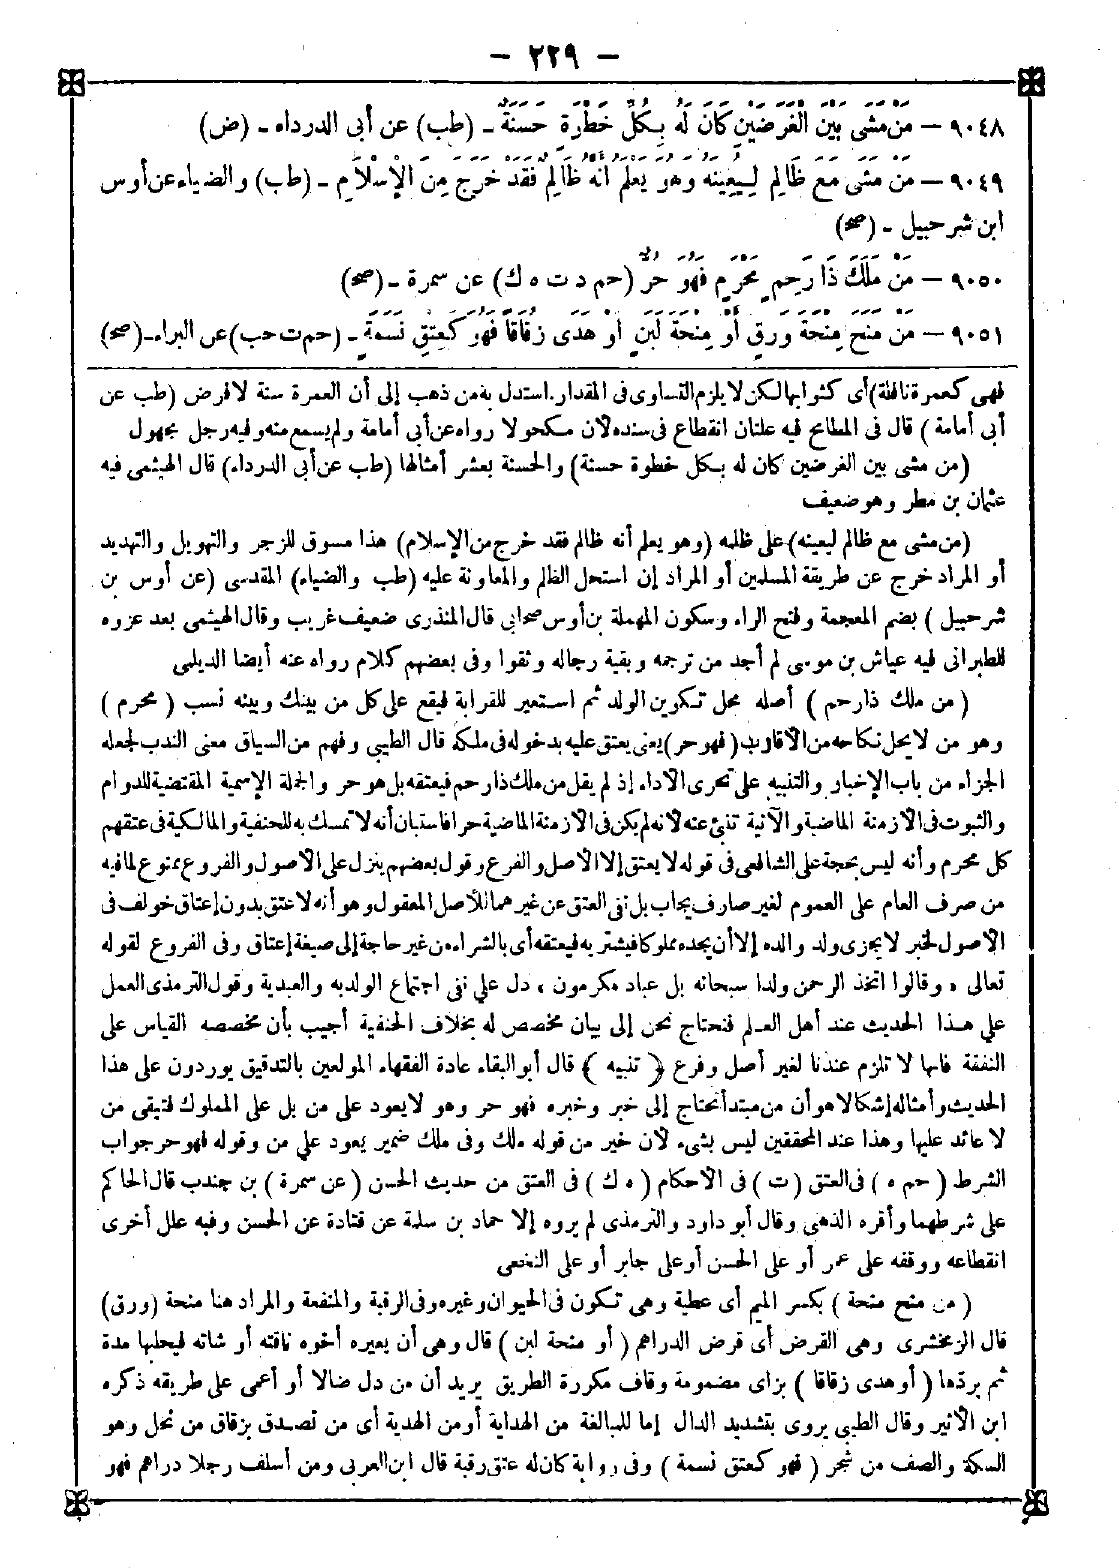 - ٢٢٩ -
٩٠٤٨ - مَنْ مَشَى بَيْنَ الْغَرَضَيْنِ كَانَ لَهُ بِكُلِّ خَطْوَةٍ حَسَنَةٌ - (طب) عن أبى الدرداء - (ض)
٩٠٤٩ - مَنْ مَشَى مَعَ ظَالِمٍ لِيُعِينَهُ وَهُوَ يَعْلَمُ أَنَّهُ ظَالِمٌ فَقَدْ خَرَجَ مِنَ الْإِسْلَامِ - (طب) والضياء عن أوس
ابن شرحبيل - (صح)
٩٠٥٠ - مَنْ مَلَكَ ذَا رَحِمٍ مَحْرَمٍ فَهُوَ حُرٌّ (حم د ت ه ك) عن سمرة - (صح)
٩٠٥١ - مَنْ مَنَحَ مِنْحَةَ وَرِقٍ أَوْ مِنْحَةَ لَبَنٍ أَوْ هَدَى زُقَاقًا فَهُوَ كَعِتْقِ نَسَمَةٍ - (حم ت حب) عن البراء - (صح)
فهى كعمرة نافلة) أى كثوابها لكن لا يلزم التساوى فى المقدار. استدل به من ذهب إلى أن العمرة سنة لا فرض (طب عن
أبى أمامة) قال فى المطامح فيه علتان انقطاع فى سنده لأن مكحولا رواه عن أبى أمامة ولم يسمع منه وفيه رجل مجهول
(من مشى بين الغرضين كان له بكل خطوة حسنة) والحسنة بعشر أمثالها (طب عن أبى الدرداء) قال الهيثمى فيه
عثمان بن مطر وهو ضعيف
(من مشى مع ظالم ليعينه) على ظلمه (وهو يعلم أنه ظالم فقد خرج من الإسلام) هذا مسوق للزجر والتهويل والتهديد
أو المراد خرج عن طريقة المسلمين أو المراد إن استحل الظلم والمعاونة عليه (طب والضياء) المقدسى (عن أوس بن
شرحبيل) بضم المعجمة وفتح الراء وسكون المهملة بن أوس صحابى قال المنذرى ضعيف غريب وقال الهيثمى بعد عزوه
للطبرانى فيه عياش بن موسى لم أجد من ترجمه وبقية رجاله وثقوا وفى بعضهم كلام رواه عنه أيضا الديلمى
(من ملك ذا رحم) أصله محل تكوين الولد ثم استعير للقرابة فيقع على كل من بينك وبينه نسب (محرم)
وهو من لا يحل نكاحه من الأقارب (فهو حر) يعنى يعتق عليه بدخوله فى ملكه قال الطيبى وفهم من السياق معنى الندب لجعله
الجزاء من باب الإخبار والتنبيه على تحرى الأداء إذ لم يقل من ملك ذا رحم فيعتقه بل هو حر والجملة الإسمية المقتضية للدوام
والثبوت فى الأزمنة الماضية والآتية تنبئ عنه لأنه لم يكن فى الأزمنة الماضية حرا فاستبان أنه لا تمسك به للحنفية والمالكية فى عتقهم
كل محرم وأنه ليس بحجة على الشافعى فى قوله لا يعتق إلا الأصل والفرع وقول بعضهم ينزل على الأصول والفروع ممنوع لما فيه
من صرف العام على العموم لغير صارف يجاب بل نفى العتق عن غيرهما للأصل المعقول وهو أنه لا عتق بدون إعتاق خولف فى
الأصول لخبر لا يجزى ولد والده إلا أن يجده مملوكا فيشتريه فيعتقه أى بالشراء من غير حاجة إلى صيغة إعتاق وفى الفروع لقوله
تعالى ، وقالوا اتخذ الرحمن ولدا سبحانه بل عباد مكرمون ، دل على نفى اجتماع الولدية والعبدية وقول الترمذى العمل
على هذا الحديث عند أهل العلم فنحتاج نحن إلى بيان مخصص له بخلاف الحنفية أجيب بأن مخصصه القياس على
النفقة فانها لا تلزم عندنا لغير أصل وفرع ﴿ تنبيه ﴾ قال أبو البقاء عادة الفقهاء المولعين بالتدقيق يوردون على هذا
الحديث وأمثاله إشكالا هو أن من مبتدأ تحتاج إلى خبر وخبره فهو حر وهو لا يعود على من بل على المملوك فتبقى من
لا عائد عليها وهذا عند المحققين ليس بشىء لأن خبر من قوله ملك وفى ملك ضمير يعود على من وقوله فهو حر جواب
الشرط (حم ه) فى العتق (ت) فى الأحكام (ه ك) فى العتق من حديث الحسن (عن سمرة) بن جندب قال الحاكم
على شرطهما وأقره الذهبى وقال أبو داود والترمذى لم يروه إلا حماد بن سلمة عن قتادة عن الحسن وفيه علل أخرى
انقطاعه ووقفه على عمر أو على الحسن أو على جابر أو على النخعى
(من منح منحة) بكسر الميم أى عطية وهى تكون فى الحيوان وغيره وفى الرقبة والمنفعة والمراد هنا منحة (ورق)
قال الزمخشرى وهى القرض أى قرض الدراهم (أو منحة لبن) قال وهى أن يعيره أخوه ناقته أو شاته فيحلبها مدة
ثم يردها (أو هدى زقاقا) بزاى مضمومة وقاف مكررة الطريق يريد أن من دل ضالا أو أعمى على طريقه ذكره
ابن الأثير وقال الطيبى يروى بتشديد الدال إما للمبالغة من الهداية أو من الهدية أى من تصدق بزقاق من نخل وهو
السكة والصف من شجر (فهو كعتق نسمة) وفى رواية كان له عتق رقبة قال ابن العربى ومن أسلف رجلا دراهم فهو